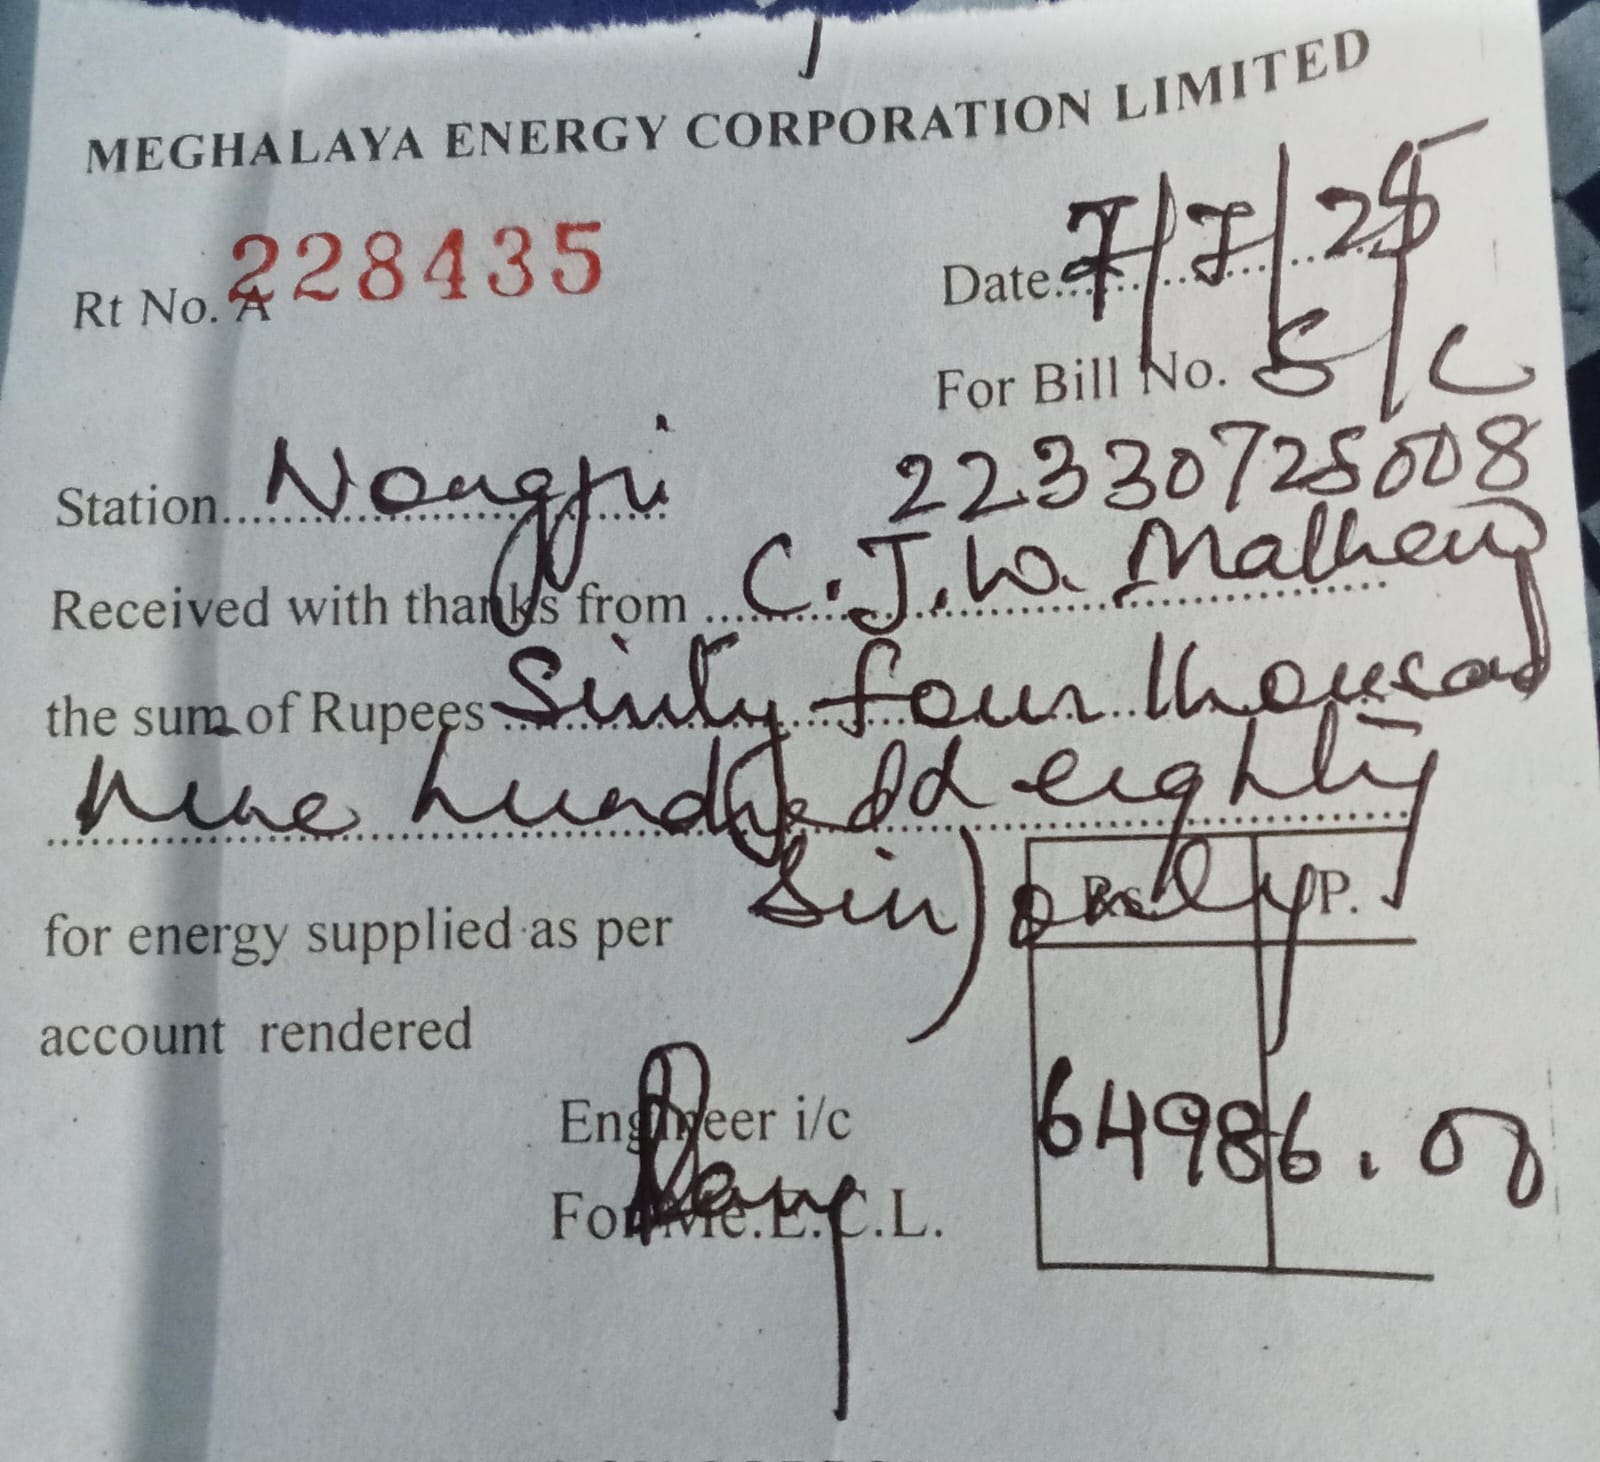 MEGHALAYA ENERGY CORPORATION LIMITED
Rt No. A 228435
Date 7/7/25
For Bill No. S/C
22330725008
Station Nongpi
Received with thanks from C.J.W. Mathew
the sum of Rupees Sixty four thousand
Nine hundred eighty
Six) only
Rs. P.
for energy supplied as per
account rendered
64986.00
Engineer i/c
For Me.E.C.L.